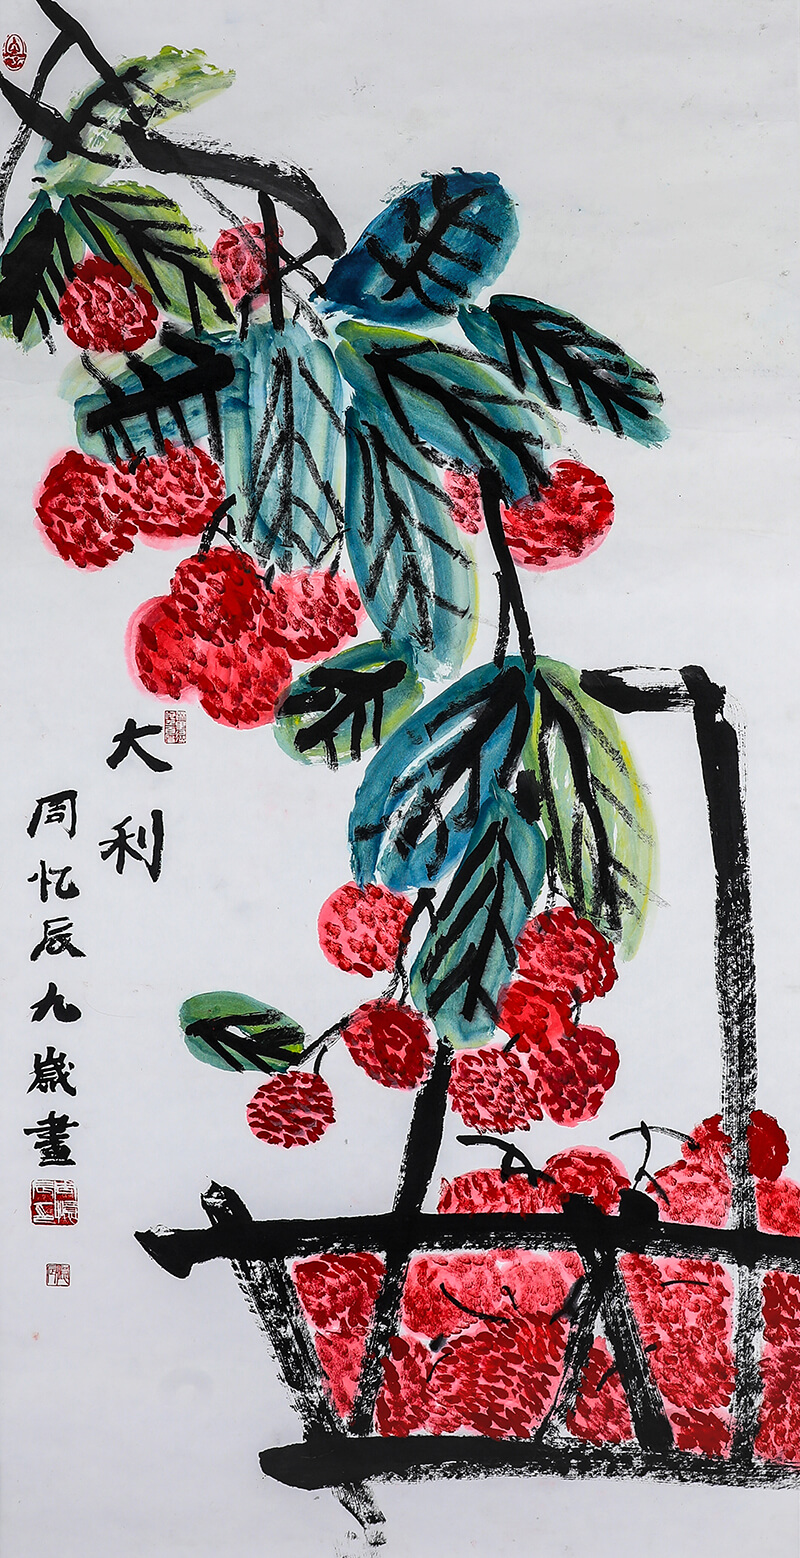 大利
周忆辰九歲畫